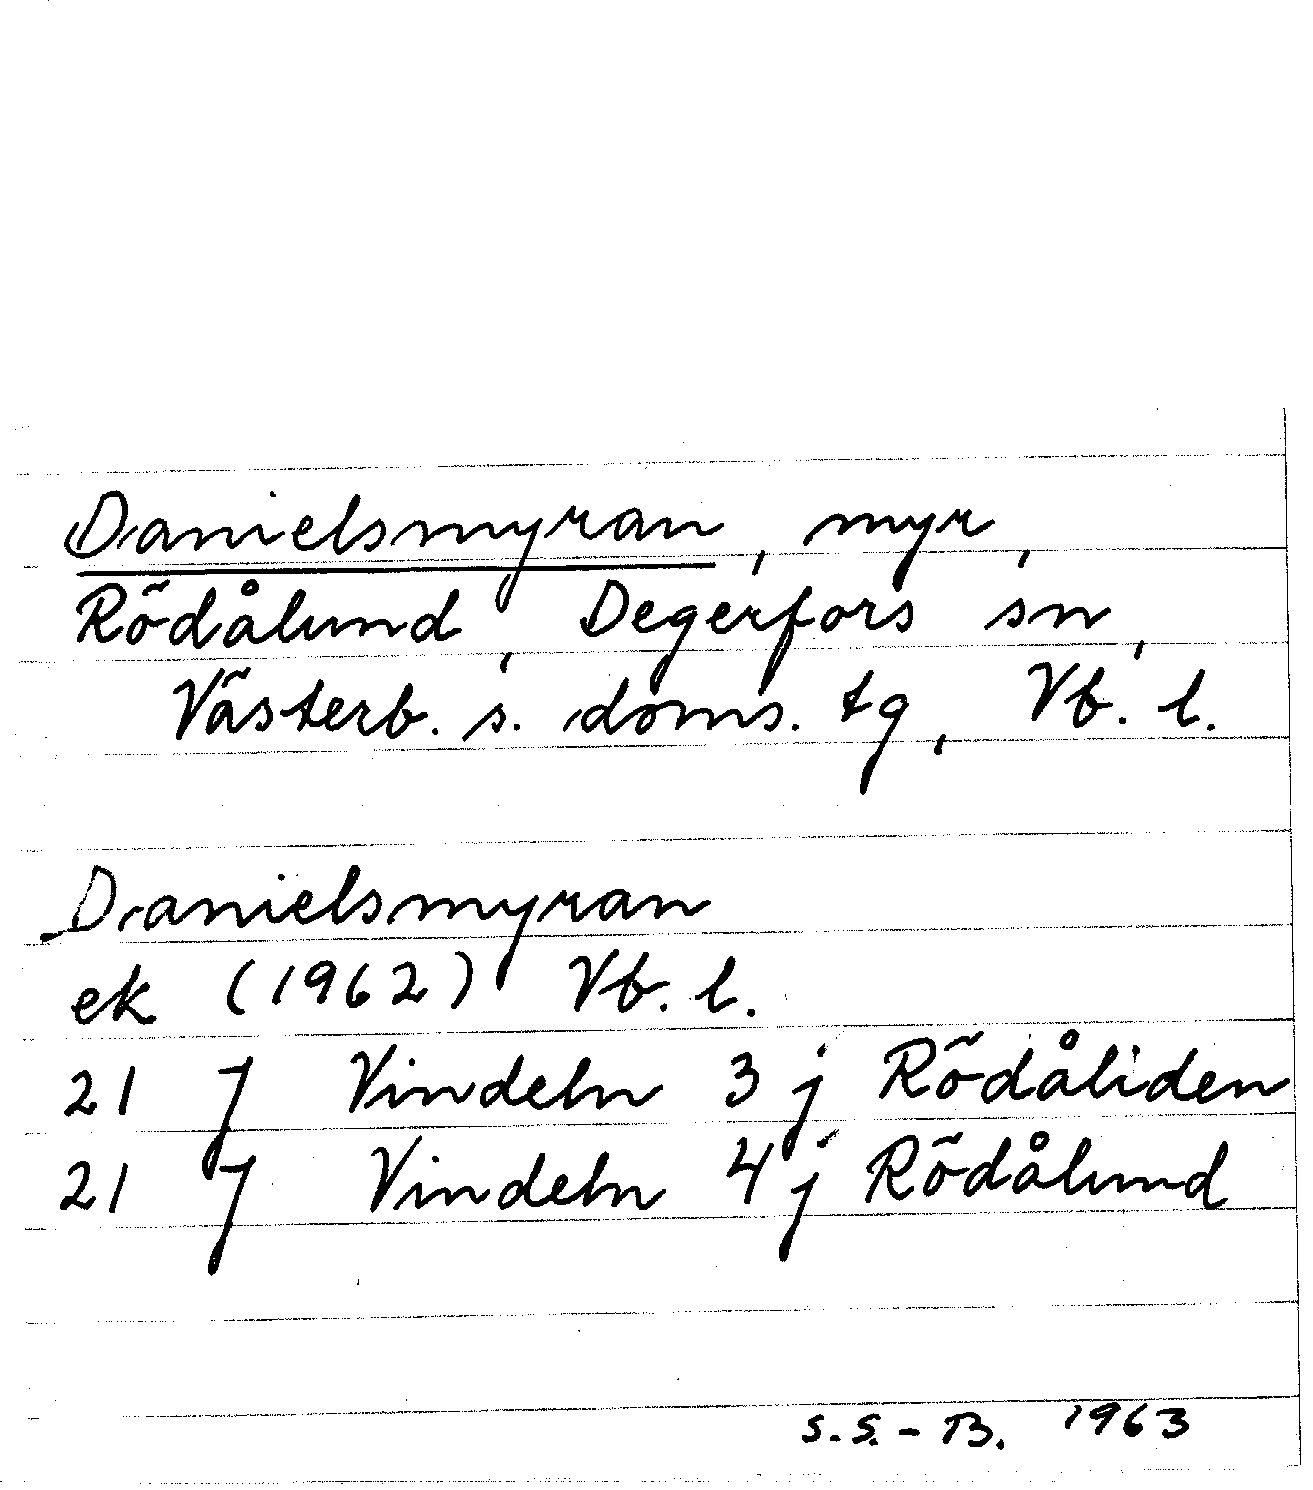 Danielsmyran, myr,
Rödålund, Degerfors sn,
Västerb. s. doms. tg, Vb. l.
Danielsmyran
ek (1962) Vb. l.
21 J Vindeln 3 j Rödåliden
21 J Vindeln 4 j Rödålund
S.S.-B. 1963